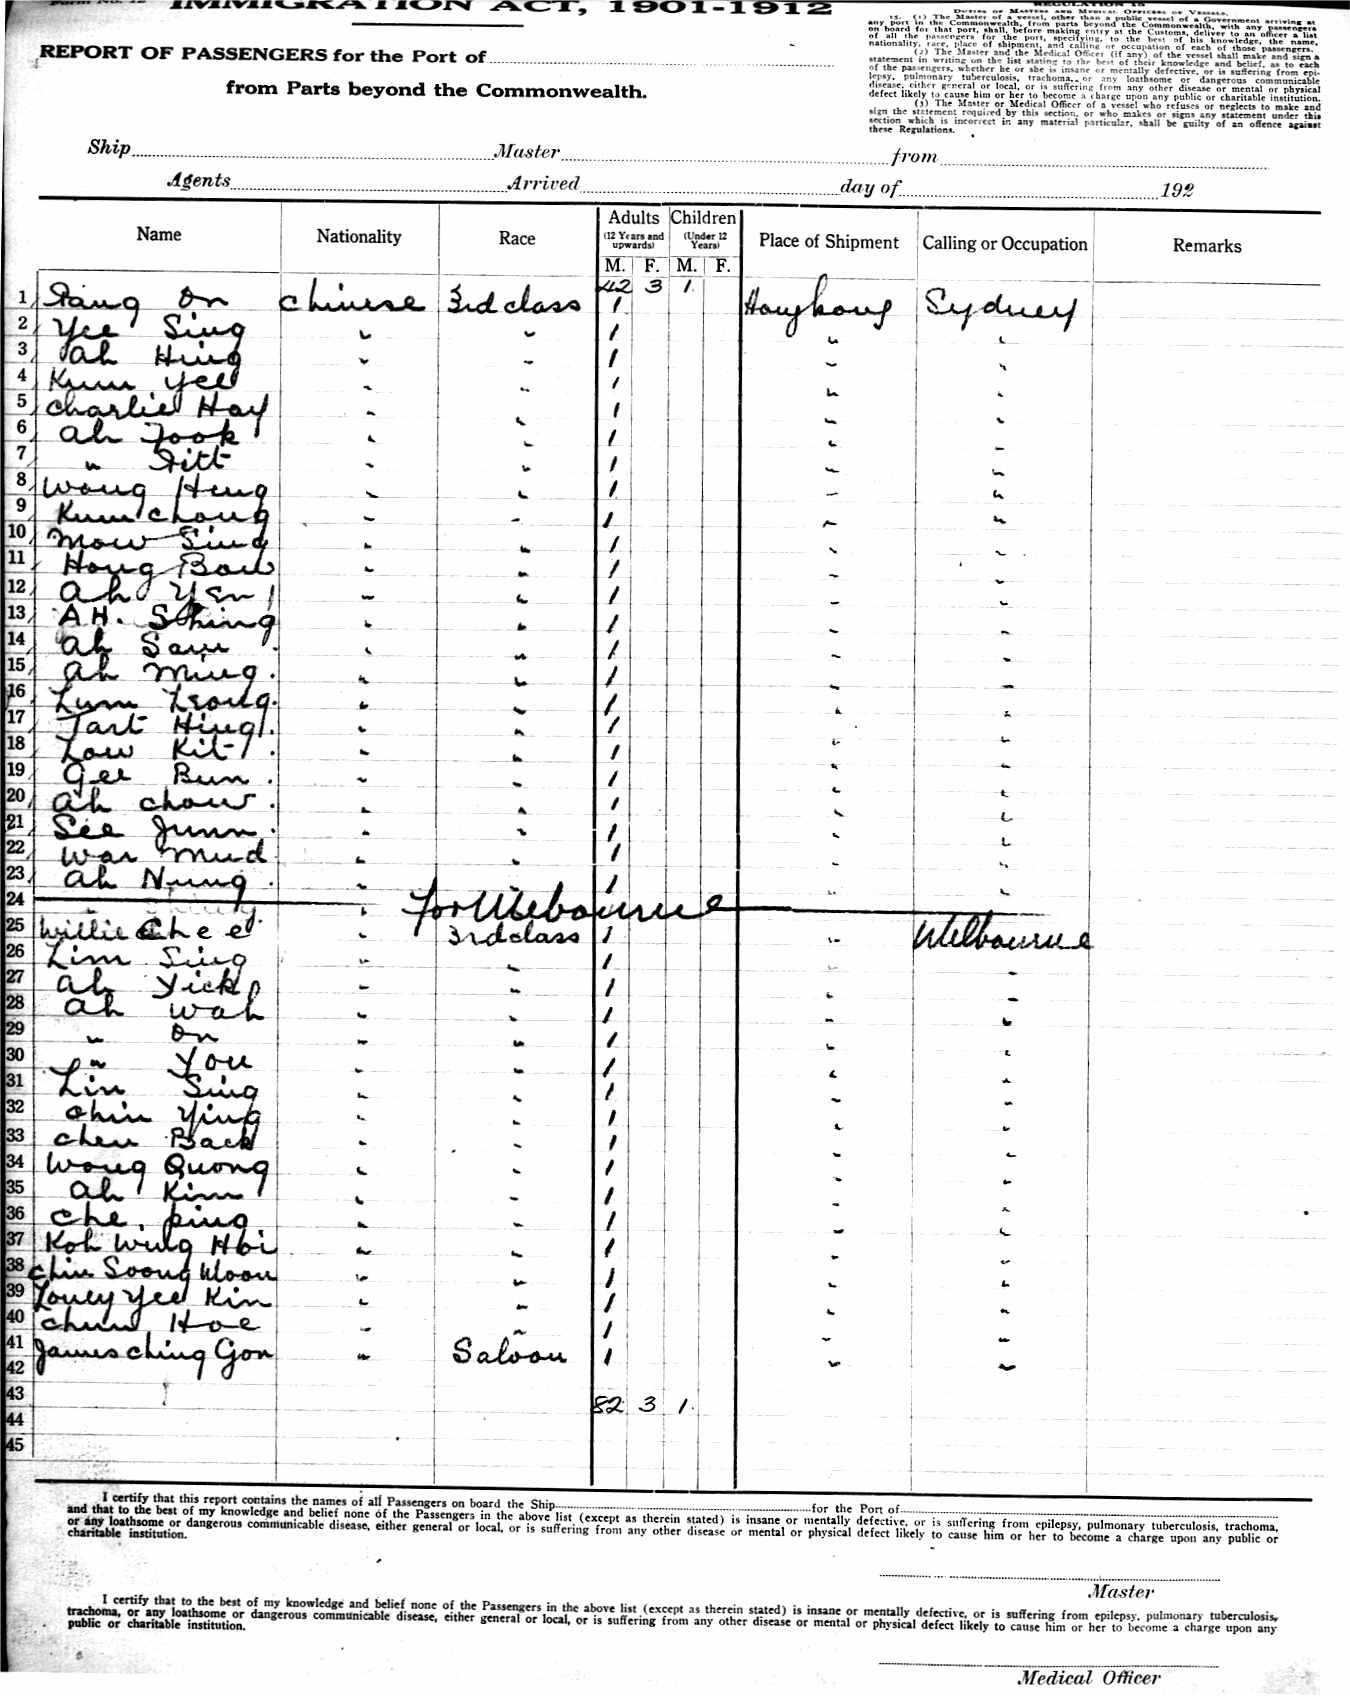 IMMIGRATION ACT, 1901-1912
REPORT OF PASSENGERS for the Port of
from Parts beyond the Commonwealth.
DUTIES OF MASTERS AND MEDICAL OFFICERS OF VESSELS.
15. (1) The Master of a vessel, other than a public vessel of a Government arriving at
any port in the Commonwealth, from parts beyond the Commonwealth, with any passengers
on board for that port, shall, before making entry at the Customs, deliver to an officer a list
of all the passengers for the port, specifying, to the best of his knowledge, the name,
nationality, race, place of shipment, and calling or occupation of each of those passengers.
(2) The Master and the Medical Officer (if any) of the vessel shall make and sign a
statement in writing on the list stating to the best of their knowledge and belief, as to each
of the passengers, whether he or she is insane or mentally defective, or is suffering from epi-
lepsy, pulmonary tuberculosis, trachoma, or any loathsome or dangerous communicable
disease, either general or local, or is suffering from any other disease or mental or physical
defect likely to cause him or her to become a charge upon any public or charitable institution.
(3) The Master or Medical Officer of a vessel who refuses or neglects to make and
sign the statement required by this section, or who makes or signs any statement under this
section which is incorrect in any material particular, shall be guilty of an offence against
these Regulations.
Ship Master from
Agents Arrived day of 192
Name Nationality Race Adults (12 Years and upwards) M. F. Children (Under 12 Years) M. F. Place of Shipment Calling or Occupation Remarks
42 3 1
1 On Chinese 3rd class 1 Hongkong Sydney
2 Yee Sing " " 1 " "
3 Ah Hing " " 1 " "
4 Kum Yee " " 1 " "
5 Charlie Hay " " 1 " "
6 Ah Fook " " 1 " "
7 " " " 1 " "
8 Wong Heng " " 1 " "
9 Kum Chong " " 1 " "
10 Mow Sing " " 1 " "
11 Hong Bow " " 1 " "
12 Ah Yen " " 1 " "
13 A H. Shing " " 1 " "
14 Ah Sam " " 1 " "
15 Ah Ming. " " 1 " "
16 Lum Leong. " " 1 " "
17 Tart Hing. " " 1 " "
18 Low Kit. " " 1 " "
19 Gee Bun. " " 1 " "
20 Ah Chow. " " 1 " "
21 See Junn. " " 1 " "
22 War Mud " " 1 " "
23 Ah Nung. " " 1 " "
24 for Melbourne
25 Willie Chee " 3rd class 1 " Melbourne
26 Lim Sing " " 1 " "
27 Ah Yick " " 1 " "
28 Ah Wah " " 1 " "
29 " On " " 1 " "
30 " You " " 1 " "
31 Lin Sing " " 1 " "
32 Chin Ying " " 1 " "
33 Chen Back " " 1 " "
34 Wong Quong " " 1 " "
35 Ah Kim " " 1 " "
36 Che. ping " " 1 " "
37 Koh Wung Hoi " " 1 " "
38 Chin Soong Moon " " 1 " "
39 Louey Yee Kin " " 1 " "
40 Chun Hoe " " 1 " "
41 James Ching Gon " Saloon 1 " "
42
43 82 3 1
44
45
I certify that this report contains the names of all Passengers on board the Ship for the Port of
and that to the best of my knowledge and belief none of the Passengers in the above list (except as therein stated) is insane or mentally defective, or is suffering from epilepsy, pulmonary tuberculosis, trachoma,
or any loathsome or dangerous communicable disease, either general or local, or is suffering from any other disease or mental or physical defect likely to cause him or her to become a charge upon any public or
charitable institution.
Master
I certify that to the best of my knowledge and belief none of the Passengers in the above list (except as therein stated) is insane or mentally defective, or is suffering from epilepsy, pulmonary tuberculosis,
trachoma, or any loathsome or dangerous communicable disease, either general or local, or is suffering from any other disease or mental or physical defect likely to cause him or her to become a charge upon any
public or charitable institution.
Medical Officer